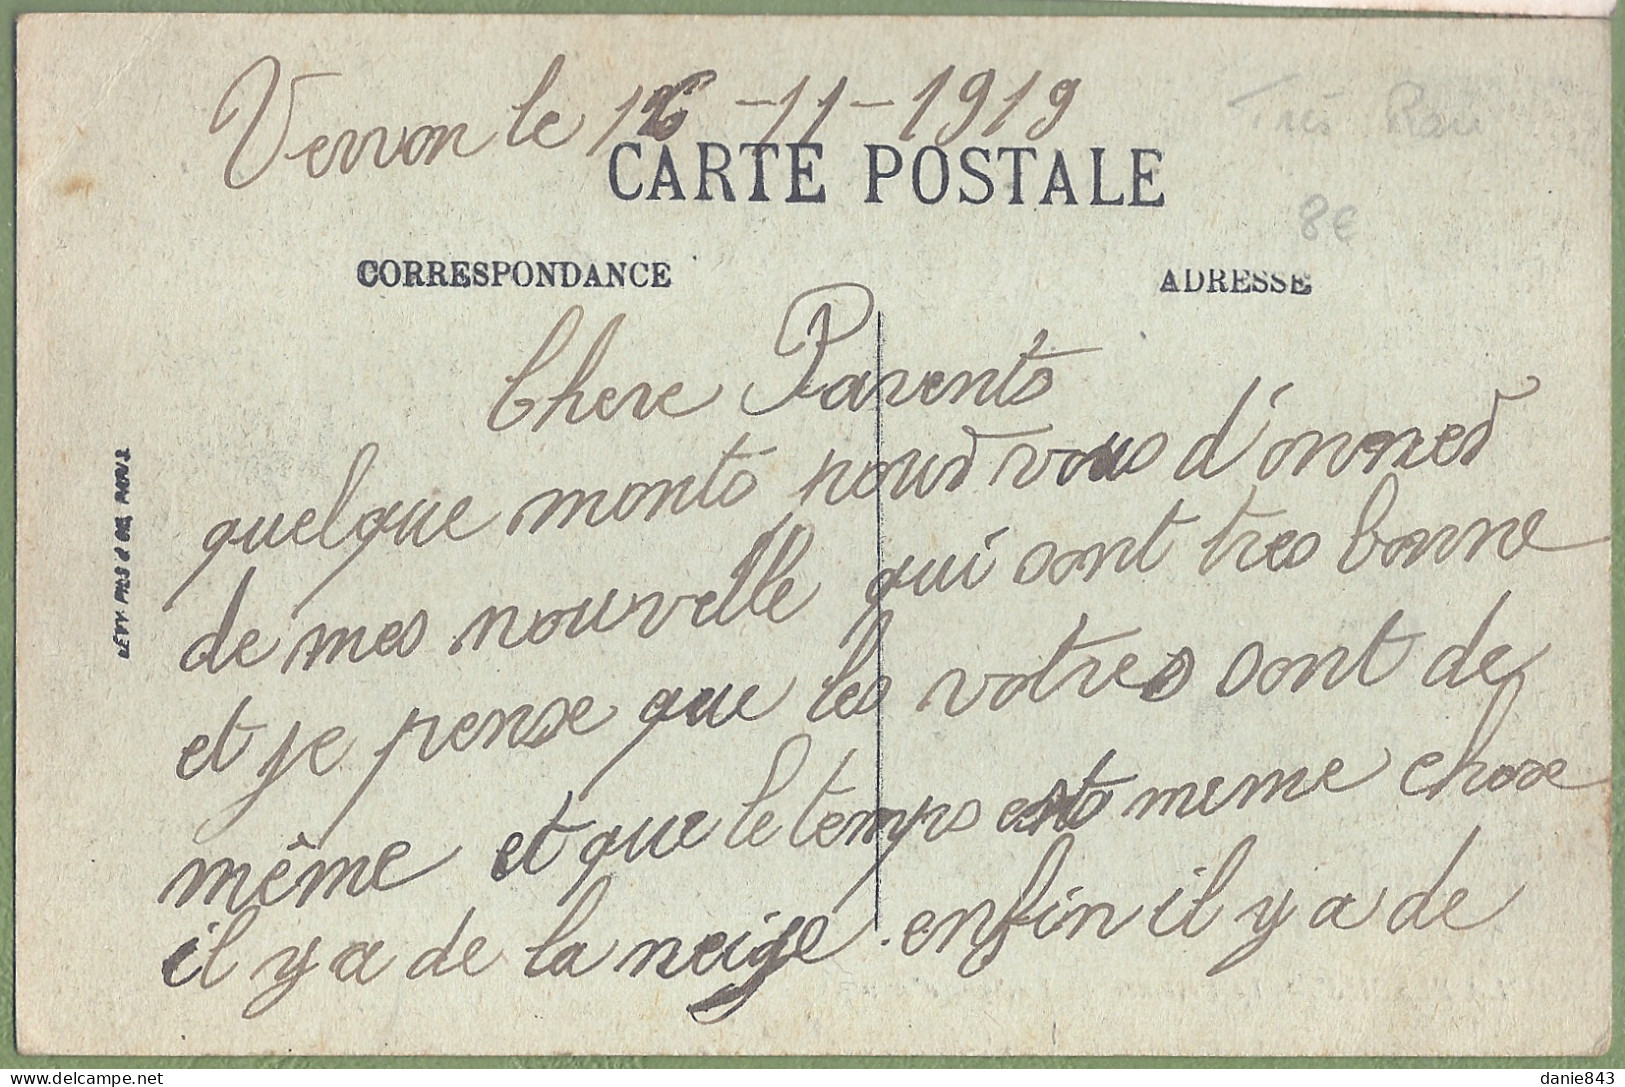 Vernon le 16-11-1919
Très Rare
CARTE POSTALE
8€
CORRESPONDANCE
ADRESSE
Chere Parents
quelque monts pour vous d'onner
de mes nouvelle qui sont tres bonne
et je pense que les votres sont de
même et que le temps est meme chose
il y a de la neige. enfin il y a de
LÉVY FILS & CIE, PARIS
delcampe.net
danie843